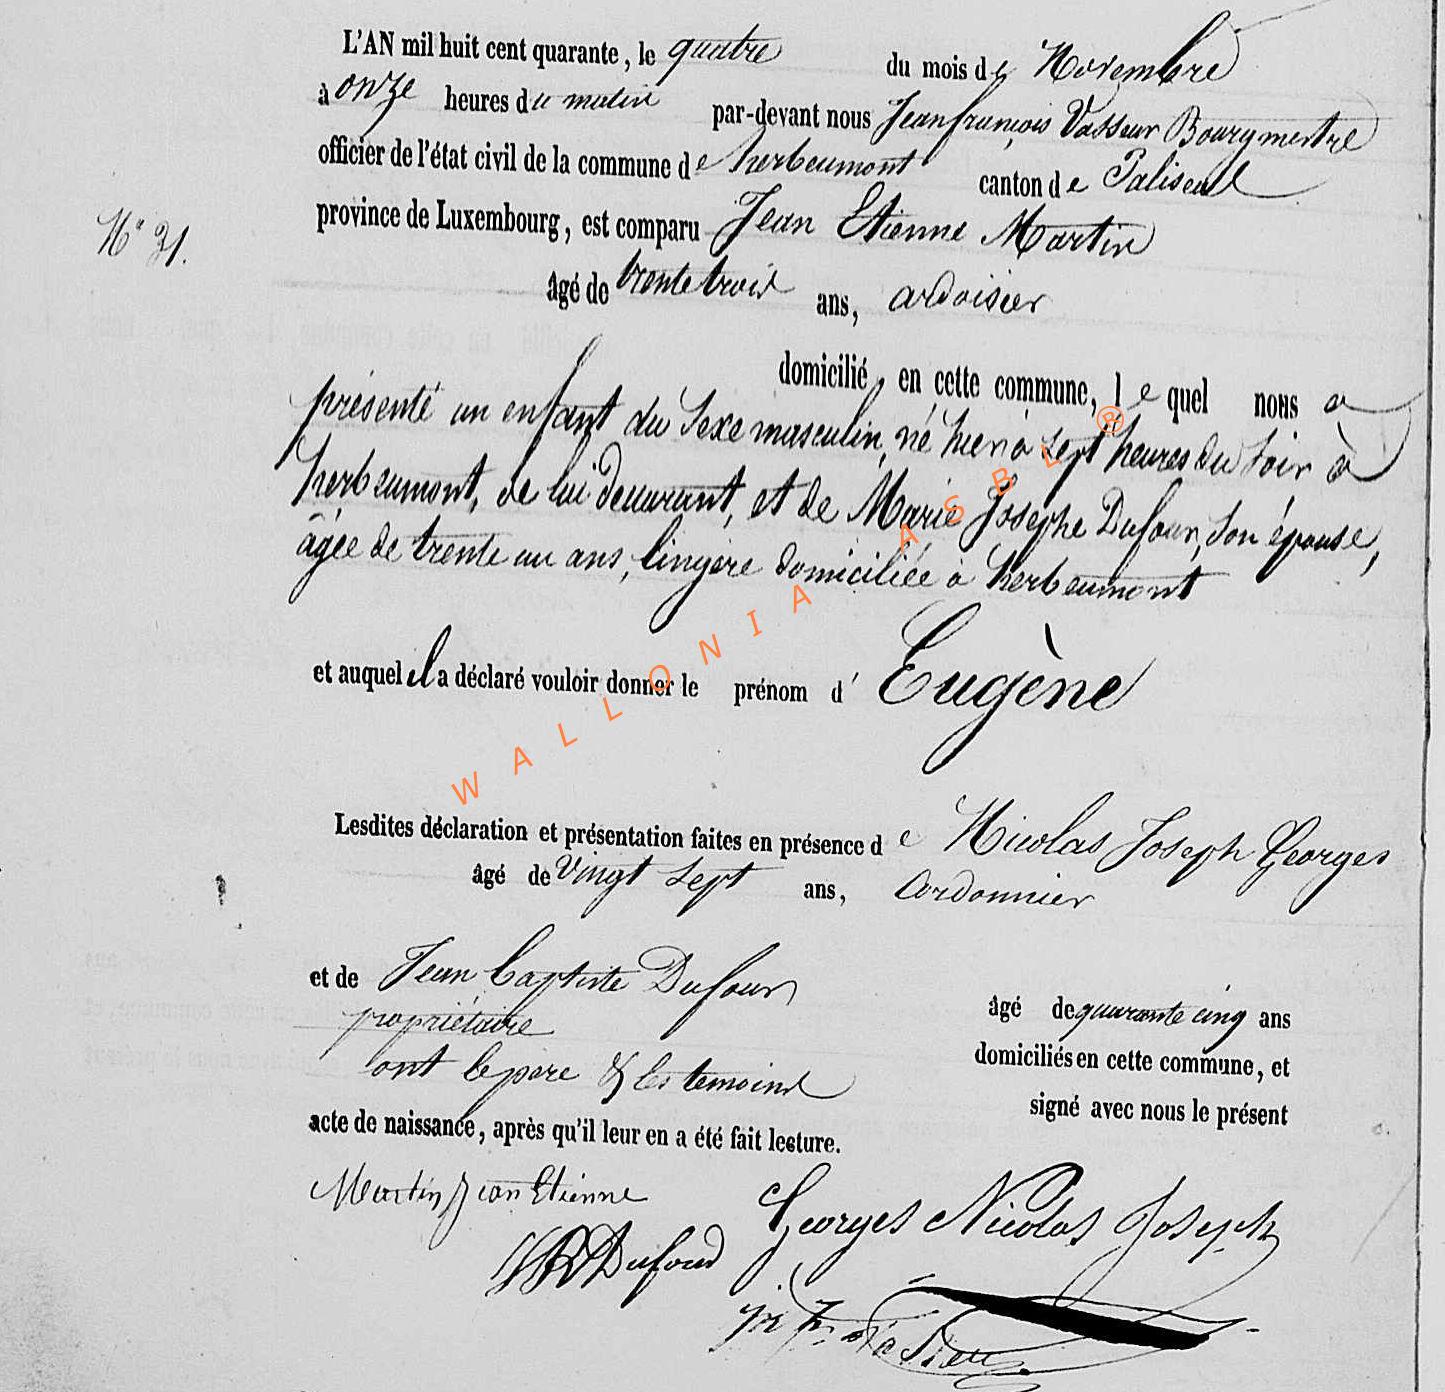 L'AN mil huit cent quarante, le quatre du mois de Novembre
à onze heures du matin par-devant nous Jeanfrançois Vasseur Bourgmestre
officier de l'état civil de la commune de herbeumont canton de Paliseul
province de Luxembourg, est comparu Jean Etienne Martin
N° 31.
âgé de trente trois ans, ardoisier
domicilié, en cette commune, lequel nous a
présenté un enfant du sexe masculin, né hier à sept heures du soir à
herbeumont, de lui déclarant, et de Marie Josephe Dufour, son épouse,
âgée de trente un ans, lingère domiciliée à herbeumont
et auquel il a déclaré vouloir donner le prénom d' Eugène
Lesdites déclaration et présentation faites en présence de Nicolas Joseph Georges
âgé de vingt sept ans, Cordonnier
et de Jean baptiste Dufour
âgé de quarante cinq ans
propriétaire
domiciliés en cette commune, et
ont le père & les temoins
signé avec nous le présent
acte de naissance, après qu'il leur en a été fait lecture.
Martin Jean Etienne
Georges Nicolas Joseph
Dufour
WALLONIA ASBL ®